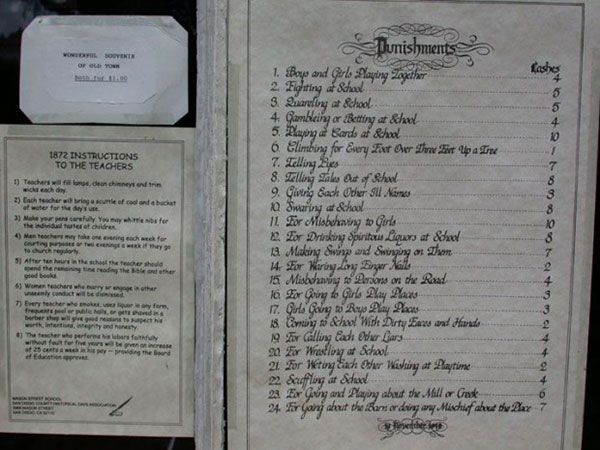 WONDERFUL SOUVENIR
OF OLD TOWN
Both for $1.00
1872 INSTRUCTIONS
TO THE TEACHERS
1) Teachers will fill lamps, clean chimneys and trim
wicks each day.
2) Each teacher will bring a scuttle of coal and a bucket
of water for the day's use.
3) Make your pens carefully. You may whittle nibs for
the individual tastes of children.
4) Men teachers may take one evening each week for
courting purposes or two evenings a week if they go
to church regularly.
5) After ten hours in the school the teacher should
spend the remaining time reading the Bible and other
good books.
6) Women teachers who marry or engage in other
unseemly conduct will be dismissed.
7) Every teacher who smokes, uses liquor in any form,
frequents pool or public halls, or gets shaved in a
barber shop will give good reasons to suspect his
worth, intentions, integrity and honesty.
8) The teacher who performs his labors faithfully
without fault for five years will be given an increase
of 25 cents a week in his pay — providing the Board
of Education approves.
MASON STREET SCHOOL
SAN DIEGO COUNTY HISTORICAL DAYS ASSOCIATION
MASON STREET
SAN DIEGO, CA
Punishments
Lashes
1. Boys and Girls Playing Together 4
2. Fighting at School 5
3. Quareling at School 5
4. Gambleing or Betting at School 4
5. Playing at Cards at School 10
6. Climbing for Every Foot Over Three Feet Up a Tree 1
7. Telling Lyes 7
8. Telling Tales Out of School 8
9. Giving Each Other Ill Names 3
10. Swaring at School 8
11. For Misbehaving to Girls 10
12. For Drinking Spiritous Liquors at School 8
13. Making Swings and Swinging on Them 7
14. For Waring Long Finger Nails 2
15. Misbehaving to Persons on the Road 4
16. For Going to Girls Play Places 3
17. Girls Going to Boys Play Places 3
18. Coming to School With Dirty Faces and Hands 2
19. For Calling Each Other Liars 4
20. For Wrestling at School 4
21. For Weting Each Other Washing at Playtime 2
22. Scuffling at School 4
23. For Going and Playing about the Mill or Creek 6
24. For Going about the Barn or doing any Mischief about the Place 7
November